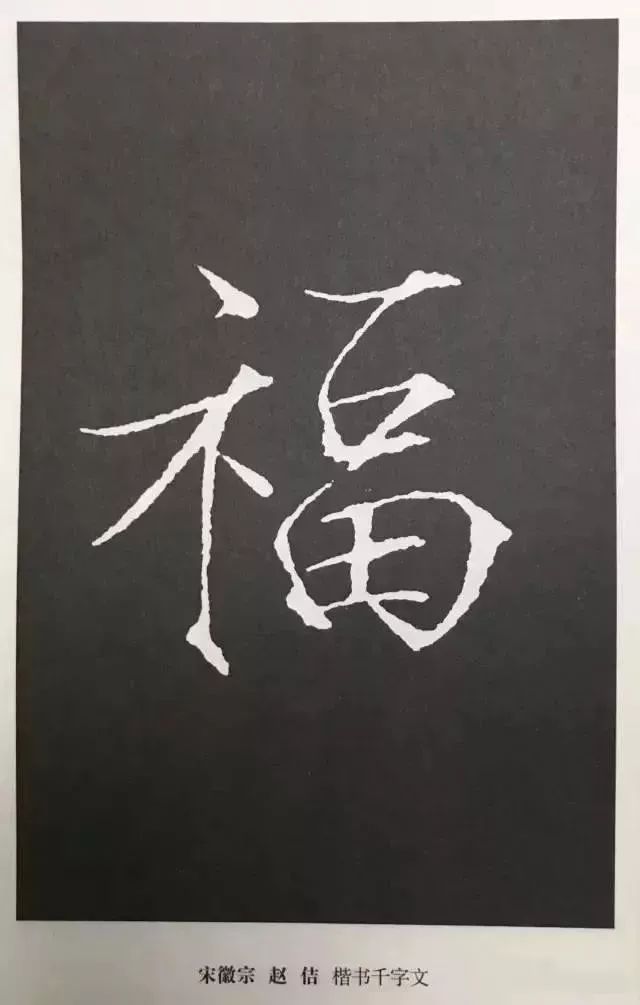 福
宋徽宗 赵 佶 楷书千字文